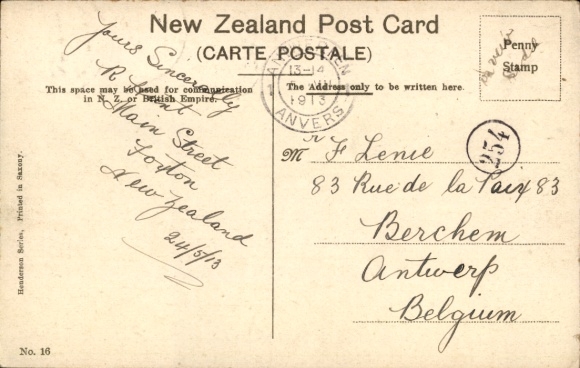 New Zealand Post Card
(CARTE POSTALE)
This space may be used for communication
in N. Z. or British Empire.
The Address only to be written here.
Penny
Stamp
ANTWERPEN
13-14
1913
ANVERS
Yours Sincerely
Main Street
Foxton
New Zealand
24/5/13
254
Mr F Lenie
83 Rue de la Paix 83
Berchem
Antwerp
Belgium
Henderson Series, Printed in Saxony.
No. 16